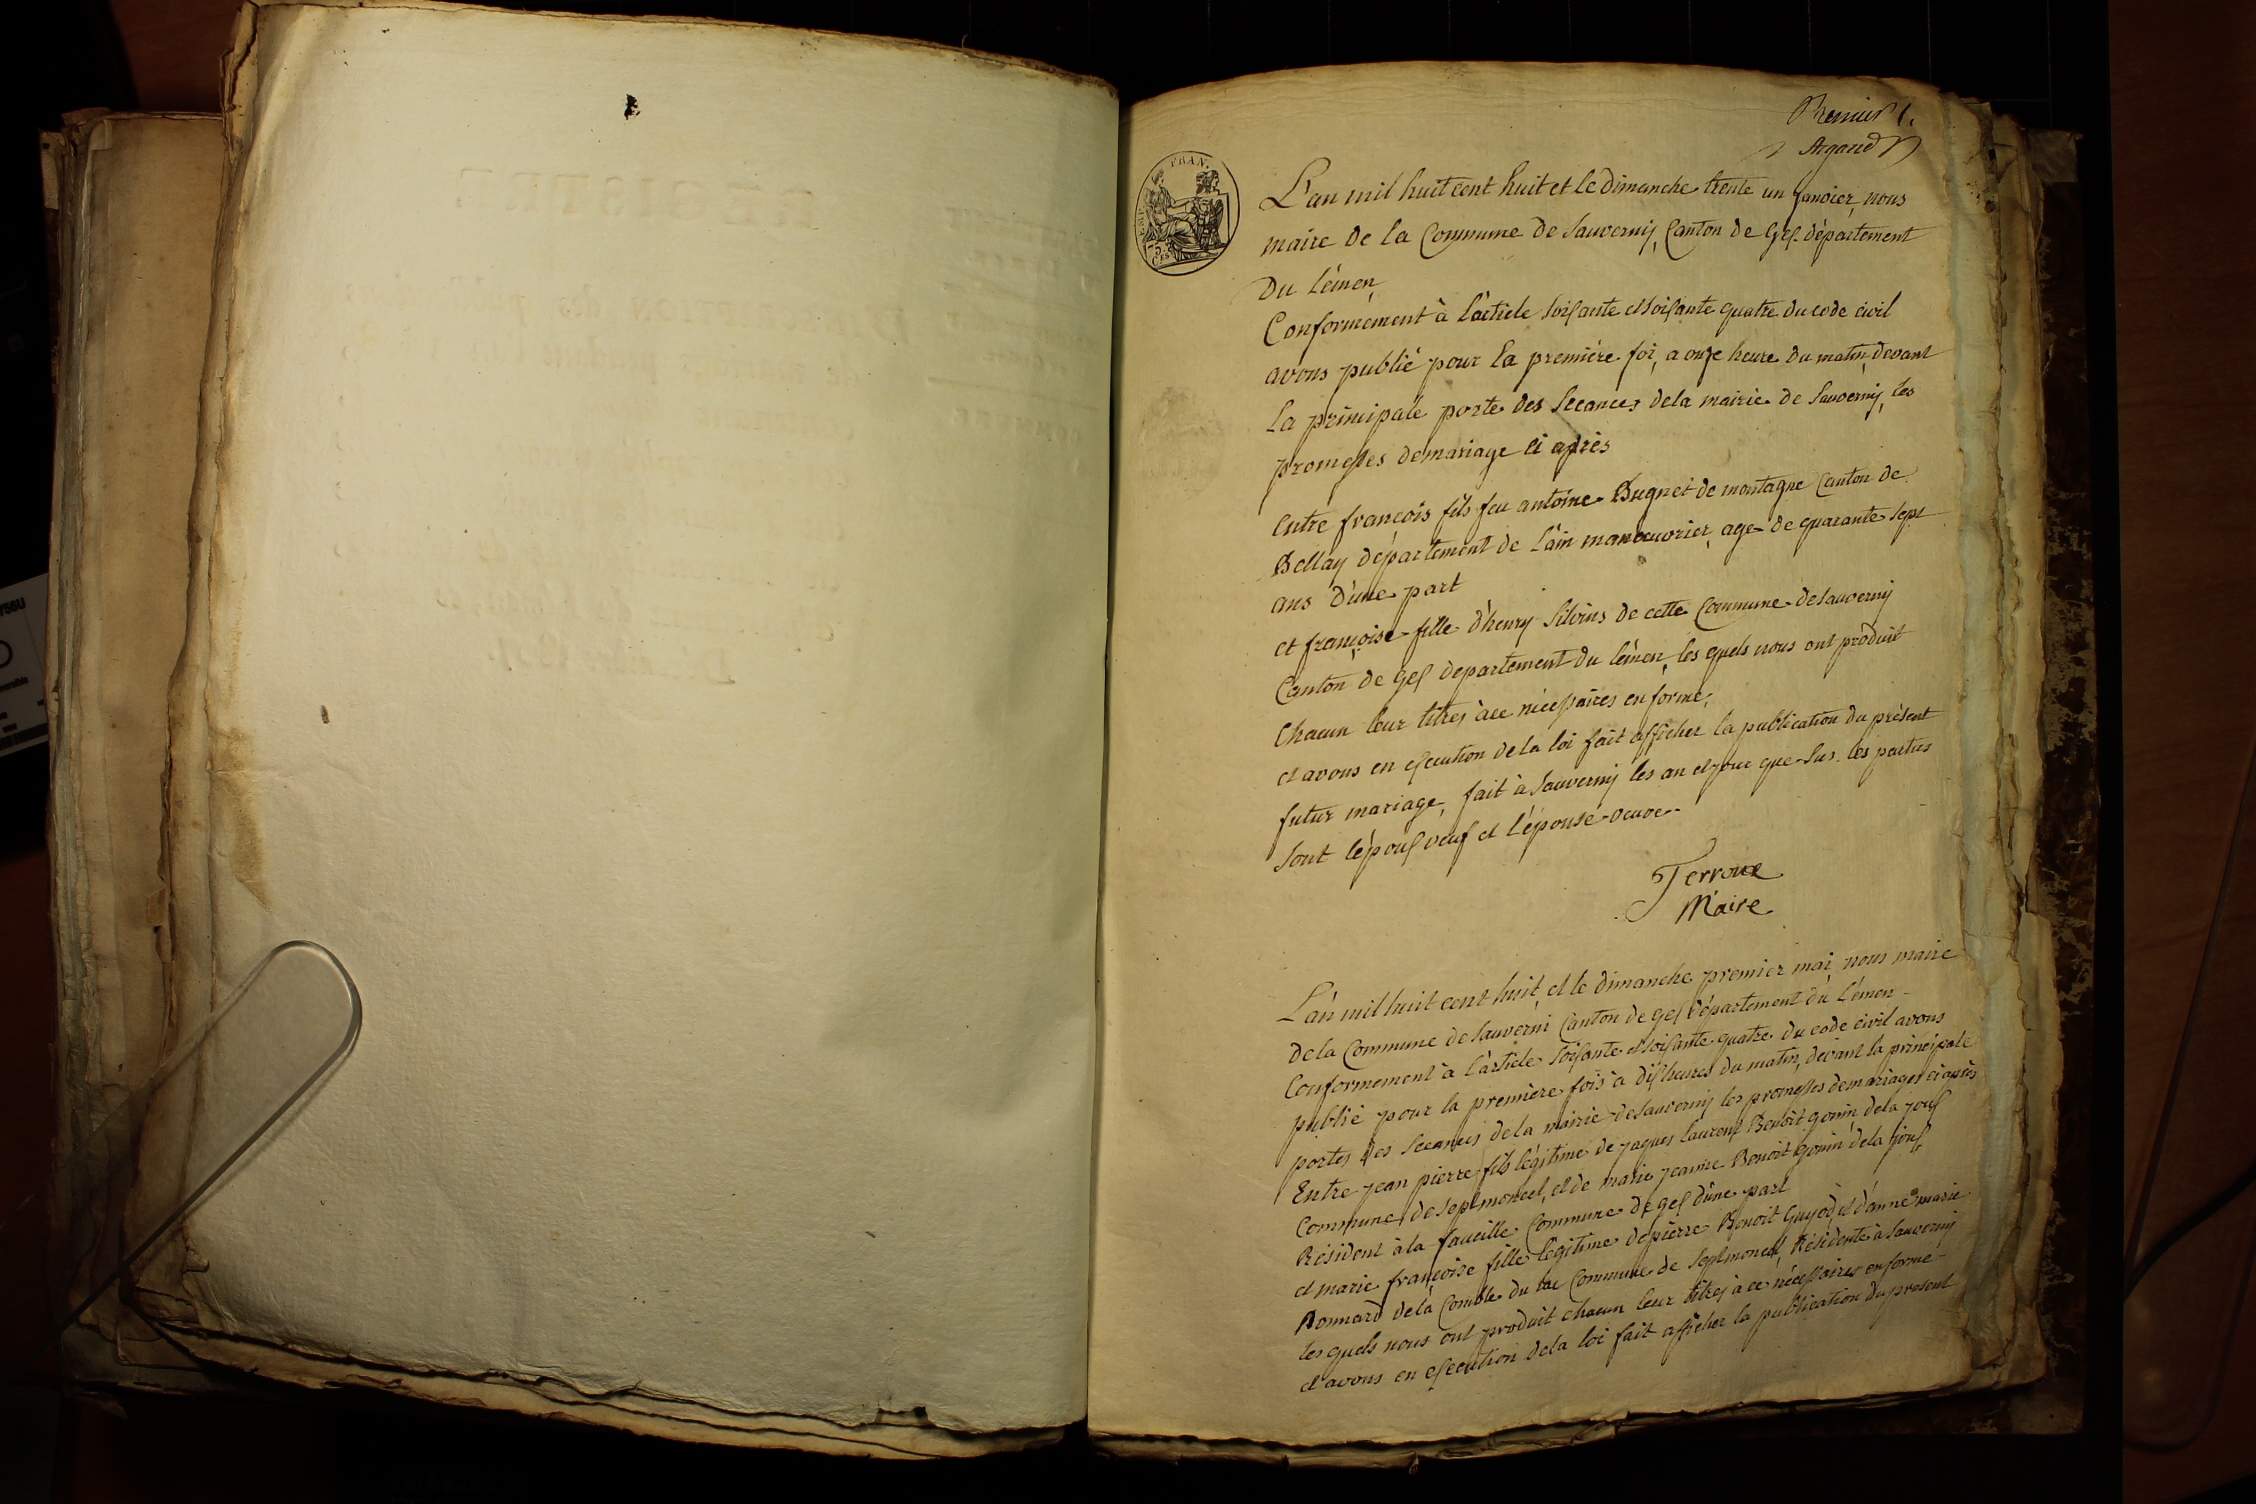 Premier 1.
Argand
EMP. FRAN.
75 Ces
L'an mil huit cent huit et le dimanche trente un janvier, nous
maire de la Commune de Sauverny, Canton de Gex département
du léman,
Conformement à l'article soixante et soixante quatre du code civil
avons publié pour la première foi, a onze heure du matin, devant
la principale porte des Seeances de la mairie de Sauverny, les
promesses de mariage ci après
Entre françois fils feu antoine Bugnet de montagne Canton de
Bellay département de l'ain manoeuvrier, age de quarante sept
ans d'une part
et françoise fille d'henry Silvins de cette Commune de Sauverny
Canton de Gex departement du léman, les quels nous ont produit
Chacun leur titres à ce nécessaires en forme,
et avons en execution de la loi fait afficher la publication du présent
futur mariage, fait à Sauverny les an et jour que sus. les parties
sont l'époux veuf et l'épouse veuve
Terroux
Maire
L'an mil huit cent huit, et le dimanche premier mai, nous maire
de la Commune de Sauverni Canton de gex département du Léman
Conformement à l'article soixante et soixante quatre du code civil avons
publié pour la première fois à dix heures du matin, devant la principale
portes des Seeances de la mairie de Sauverny les promesses de mariages ci après
Entre jean pierre fils légitime de jaques laurent Benoit gonin de la joux
Commune de Septmoncel, et de marie jeanne Benoit gonin de la joux
Résident à la faucille Commune de gex d'une part
et marie françoise fille légitime de pierre Benoit Guyod, et d'anne marie
Bonnard de la Combe du lac Commune de Septmoncel, Résidente à Sauverny
les quels nous ont produit chacun leur titres à ce nécessaires en forme
et avons en execution de la loi fait afficher la publication du present